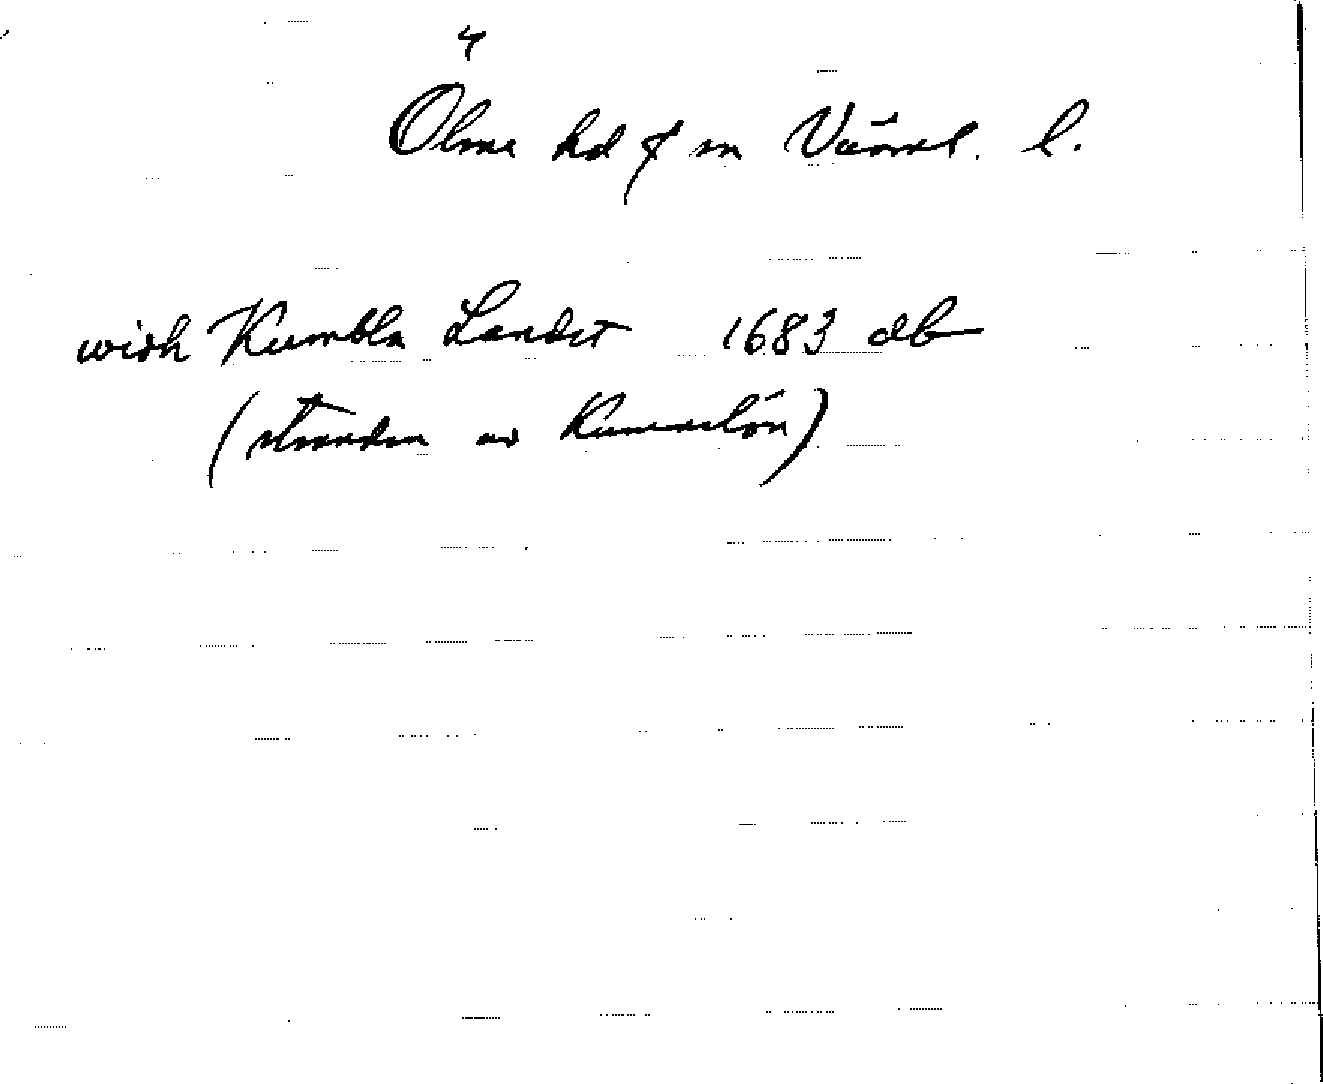 4
Ölme hd f sn Värml. l.
widh Kumbla Landet 1683 db
(stranden av Kummelön)